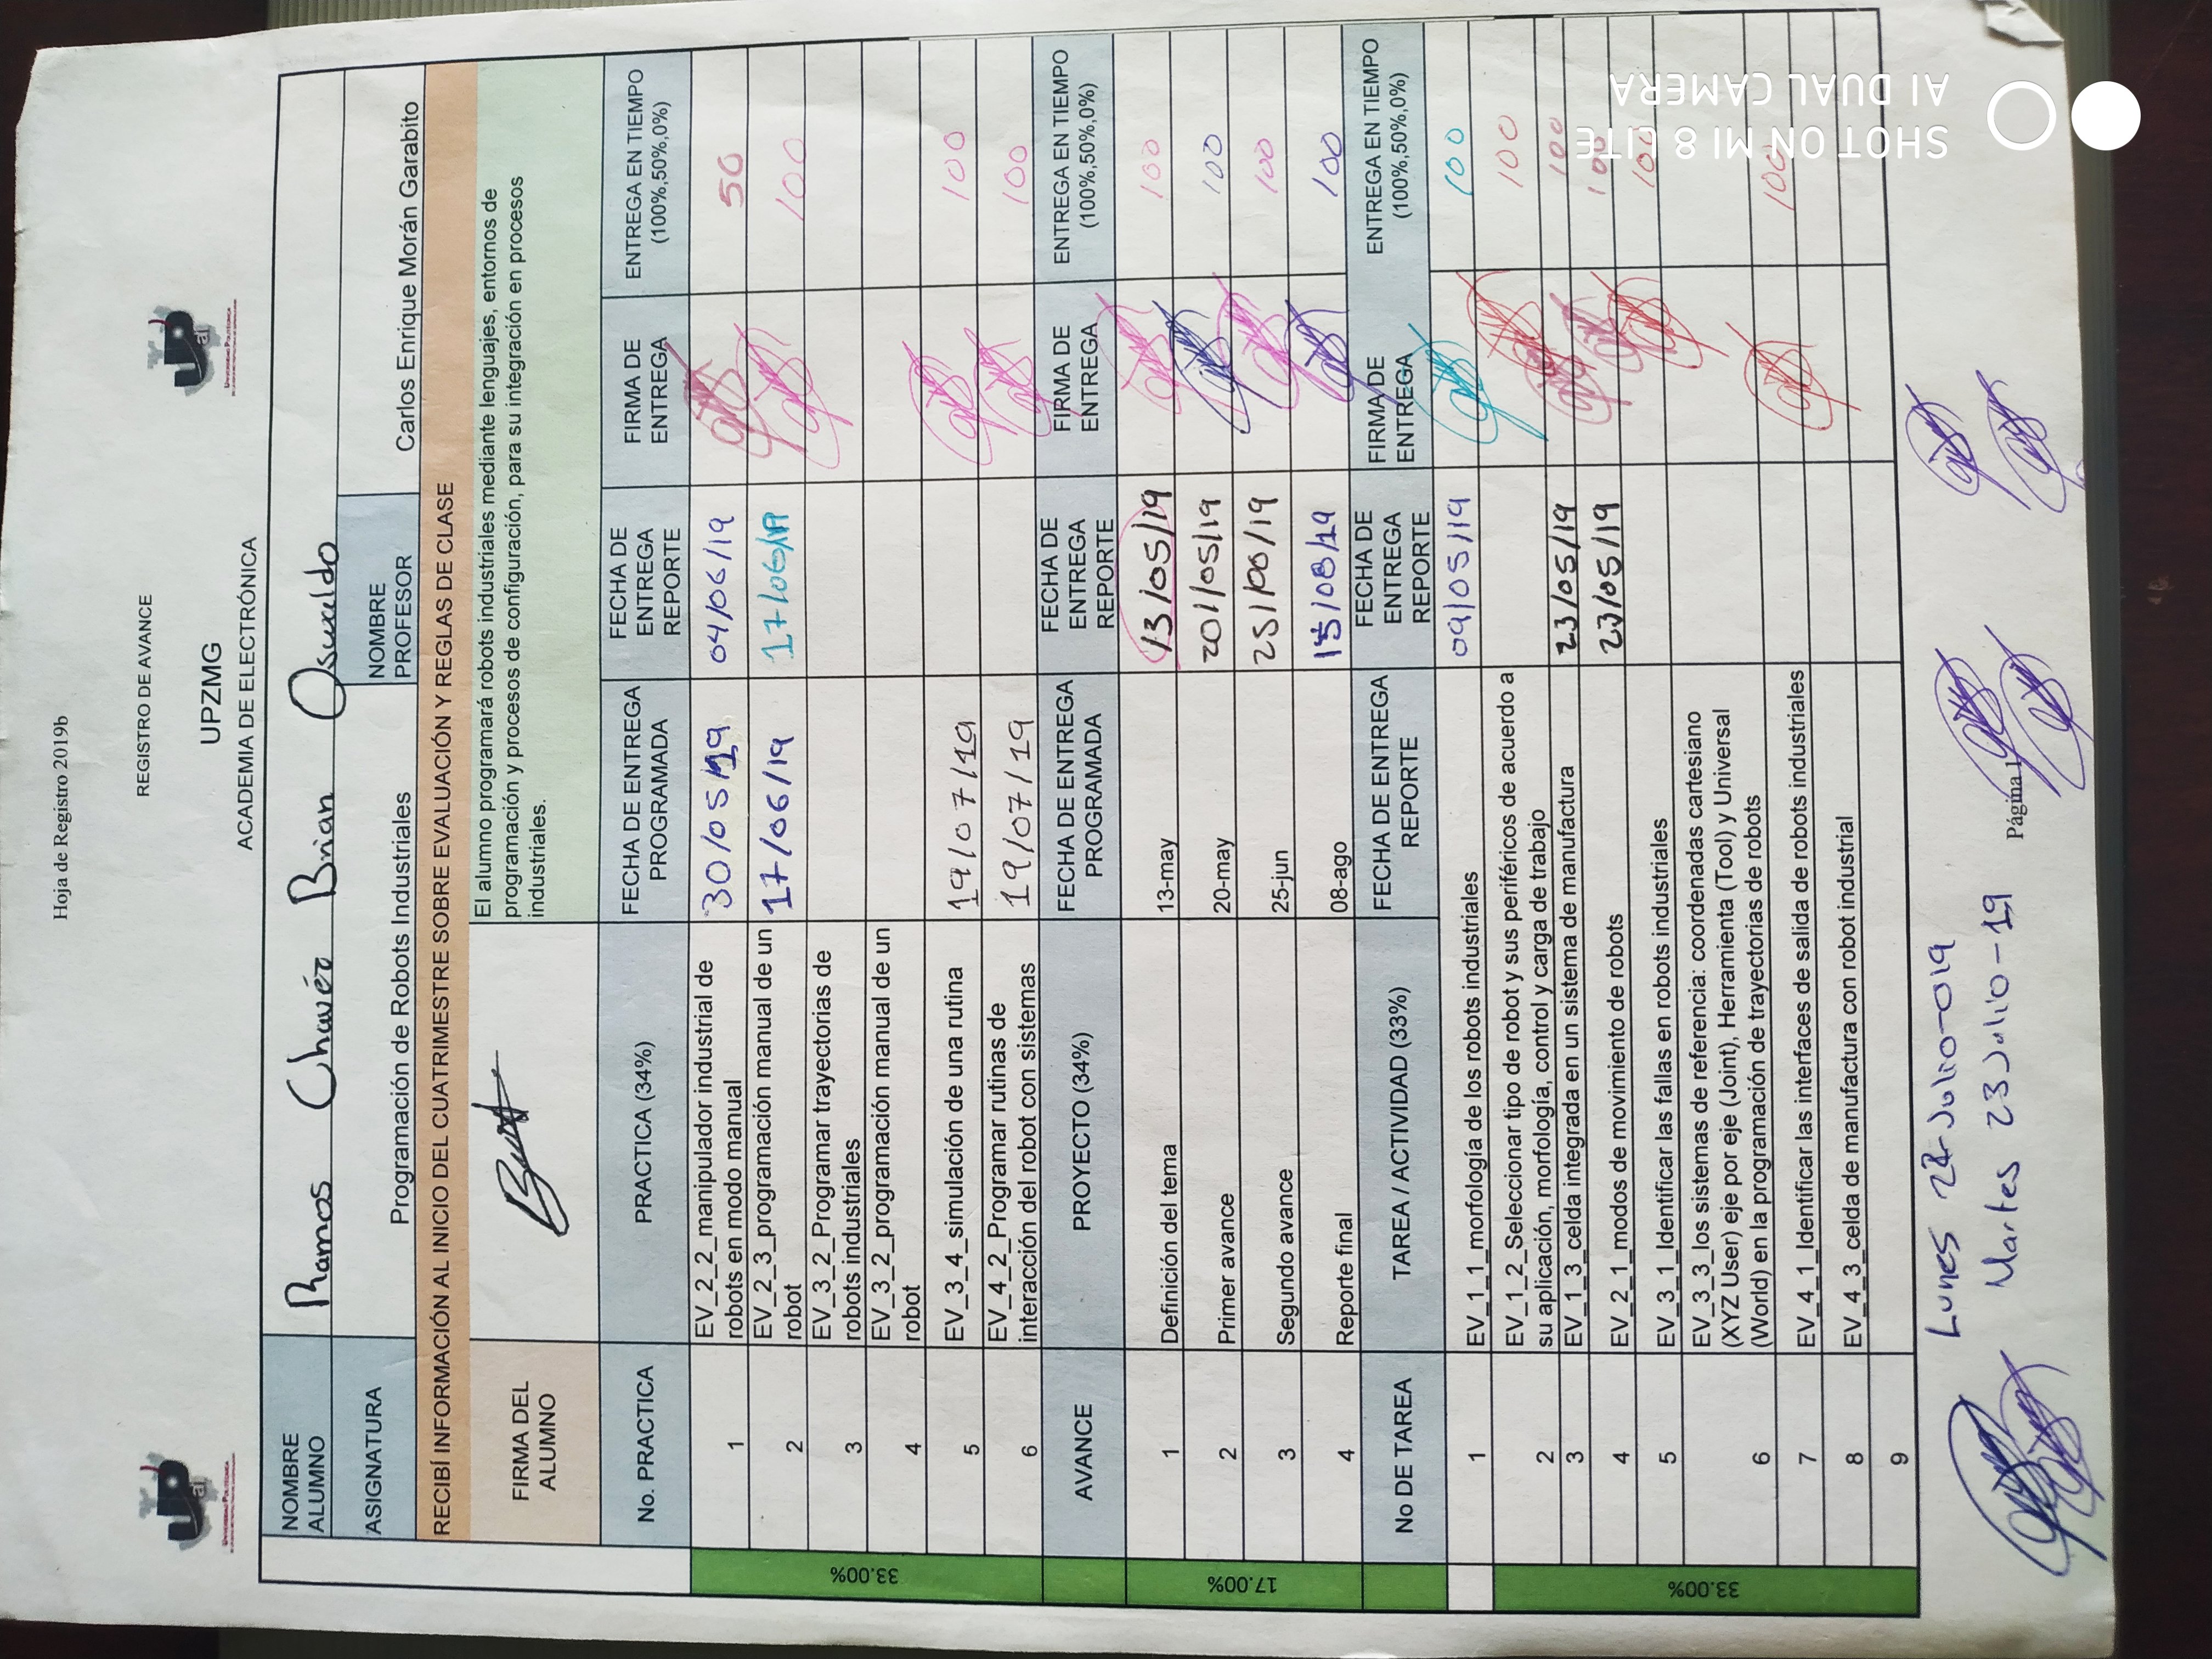 Hoja de Registro 2019b
REGISTRO DE AVANCE
UPZMG
ACADEMIA DE ELECTRÓNICA
NOMBRE ALUMNO Ramos Chavéz Brian Osvaldo
ASIGNATURA Programación de Robots Industriales NOMBRE PROFESOR Carlos Enrique Morán Garabito
RECIBÍ INFORMACIÓN AL INICIO DEL CUATRIMESTRE SOBRE EVALUACIÓN Y REGLAS DE CLASE
FIRMA DEL ALUMNO
El alumno programará robots industriales mediante lenguajes, entornos de
programación y procesos de configuración, para su integración en procesos
industriales.
33.00%
No. PRACTICA PRACTICA (34%) FECHA DE ENTREGA PROGRAMADA FECHA DE ENTREGA REPORTE FIRMA DE ENTREGA ENTREGA EN TIEMPO (100%,50%,0%)
1 EV_2_2_manipulador industrial de robots en modo manual 30/05/19 04/06/19 50
2 EV_2_3_programación manual de un robot 17/06/19 17/06/19 100
3 EV_3_2_Programar trayectorias de robots industriales
4 EV_3_2_programación manual de un robot
5 EV_3_4_simulación de una rutina 19/07/19 100
6 EV_4_2_Programar rutinas de interacción del robot con sistemas 19/07/19 100
17.00%
AVANCE PROYECTO (34%) FECHA DE ENTREGA PROGRAMADA FECHA DE ENTREGA REPORTE FIRMA DE ENTREGA ENTREGA EN TIEMPO (100%,50%,0%)
1 Definición del tema 13-may 13/05/19 100
2 Primer avance 20-may 20/05/19 100
3 Segundo avance 25-jun 25/06/19 100
4 Reporte final 08-ago 15/08/19 100
33.00%
No DE TAREA TAREA / ACTIVIDAD (33%) FECHA DE ENTREGA REPORTE FECHA DE ENTREGA REPORTE FIRMA DE ENTREGA ENTREGA EN TIEMPO (100%,50%,0%)
1 EV_1_1_morfología de los robots industriales 09/05/19 100
2 EV_1_2_Seleccionar tipo de robot y sus periféricos de acuerdo a
su aplicación, morfología, control y carga de trabajo 100
3 EV_1_3_celda integrada en un sistema de manufactura 23/05/19 100
4 EV_2_1_modos de movimiento de robots 23/05/19 100
5 EV_3_1_Identificar las fallas en robots industriales 100
EV_3_3_los sistemas de referencia: coordenadas cartesiano
(XYZ User) eje por eje (Joint), Herramienta (Tool) y Universal
6 (World) en la programación de trayectorias de robots
7 EV_4_1_Identificar las interfaces de salida de robots industriales 100
8 EV_4_3_celda de manufactura con robot industrial
9
Lunes 22-Julio-019
Martes 23 Julio-19
Página 1
SHOT ON MI 8 LITE
AI DUAL CAMERA